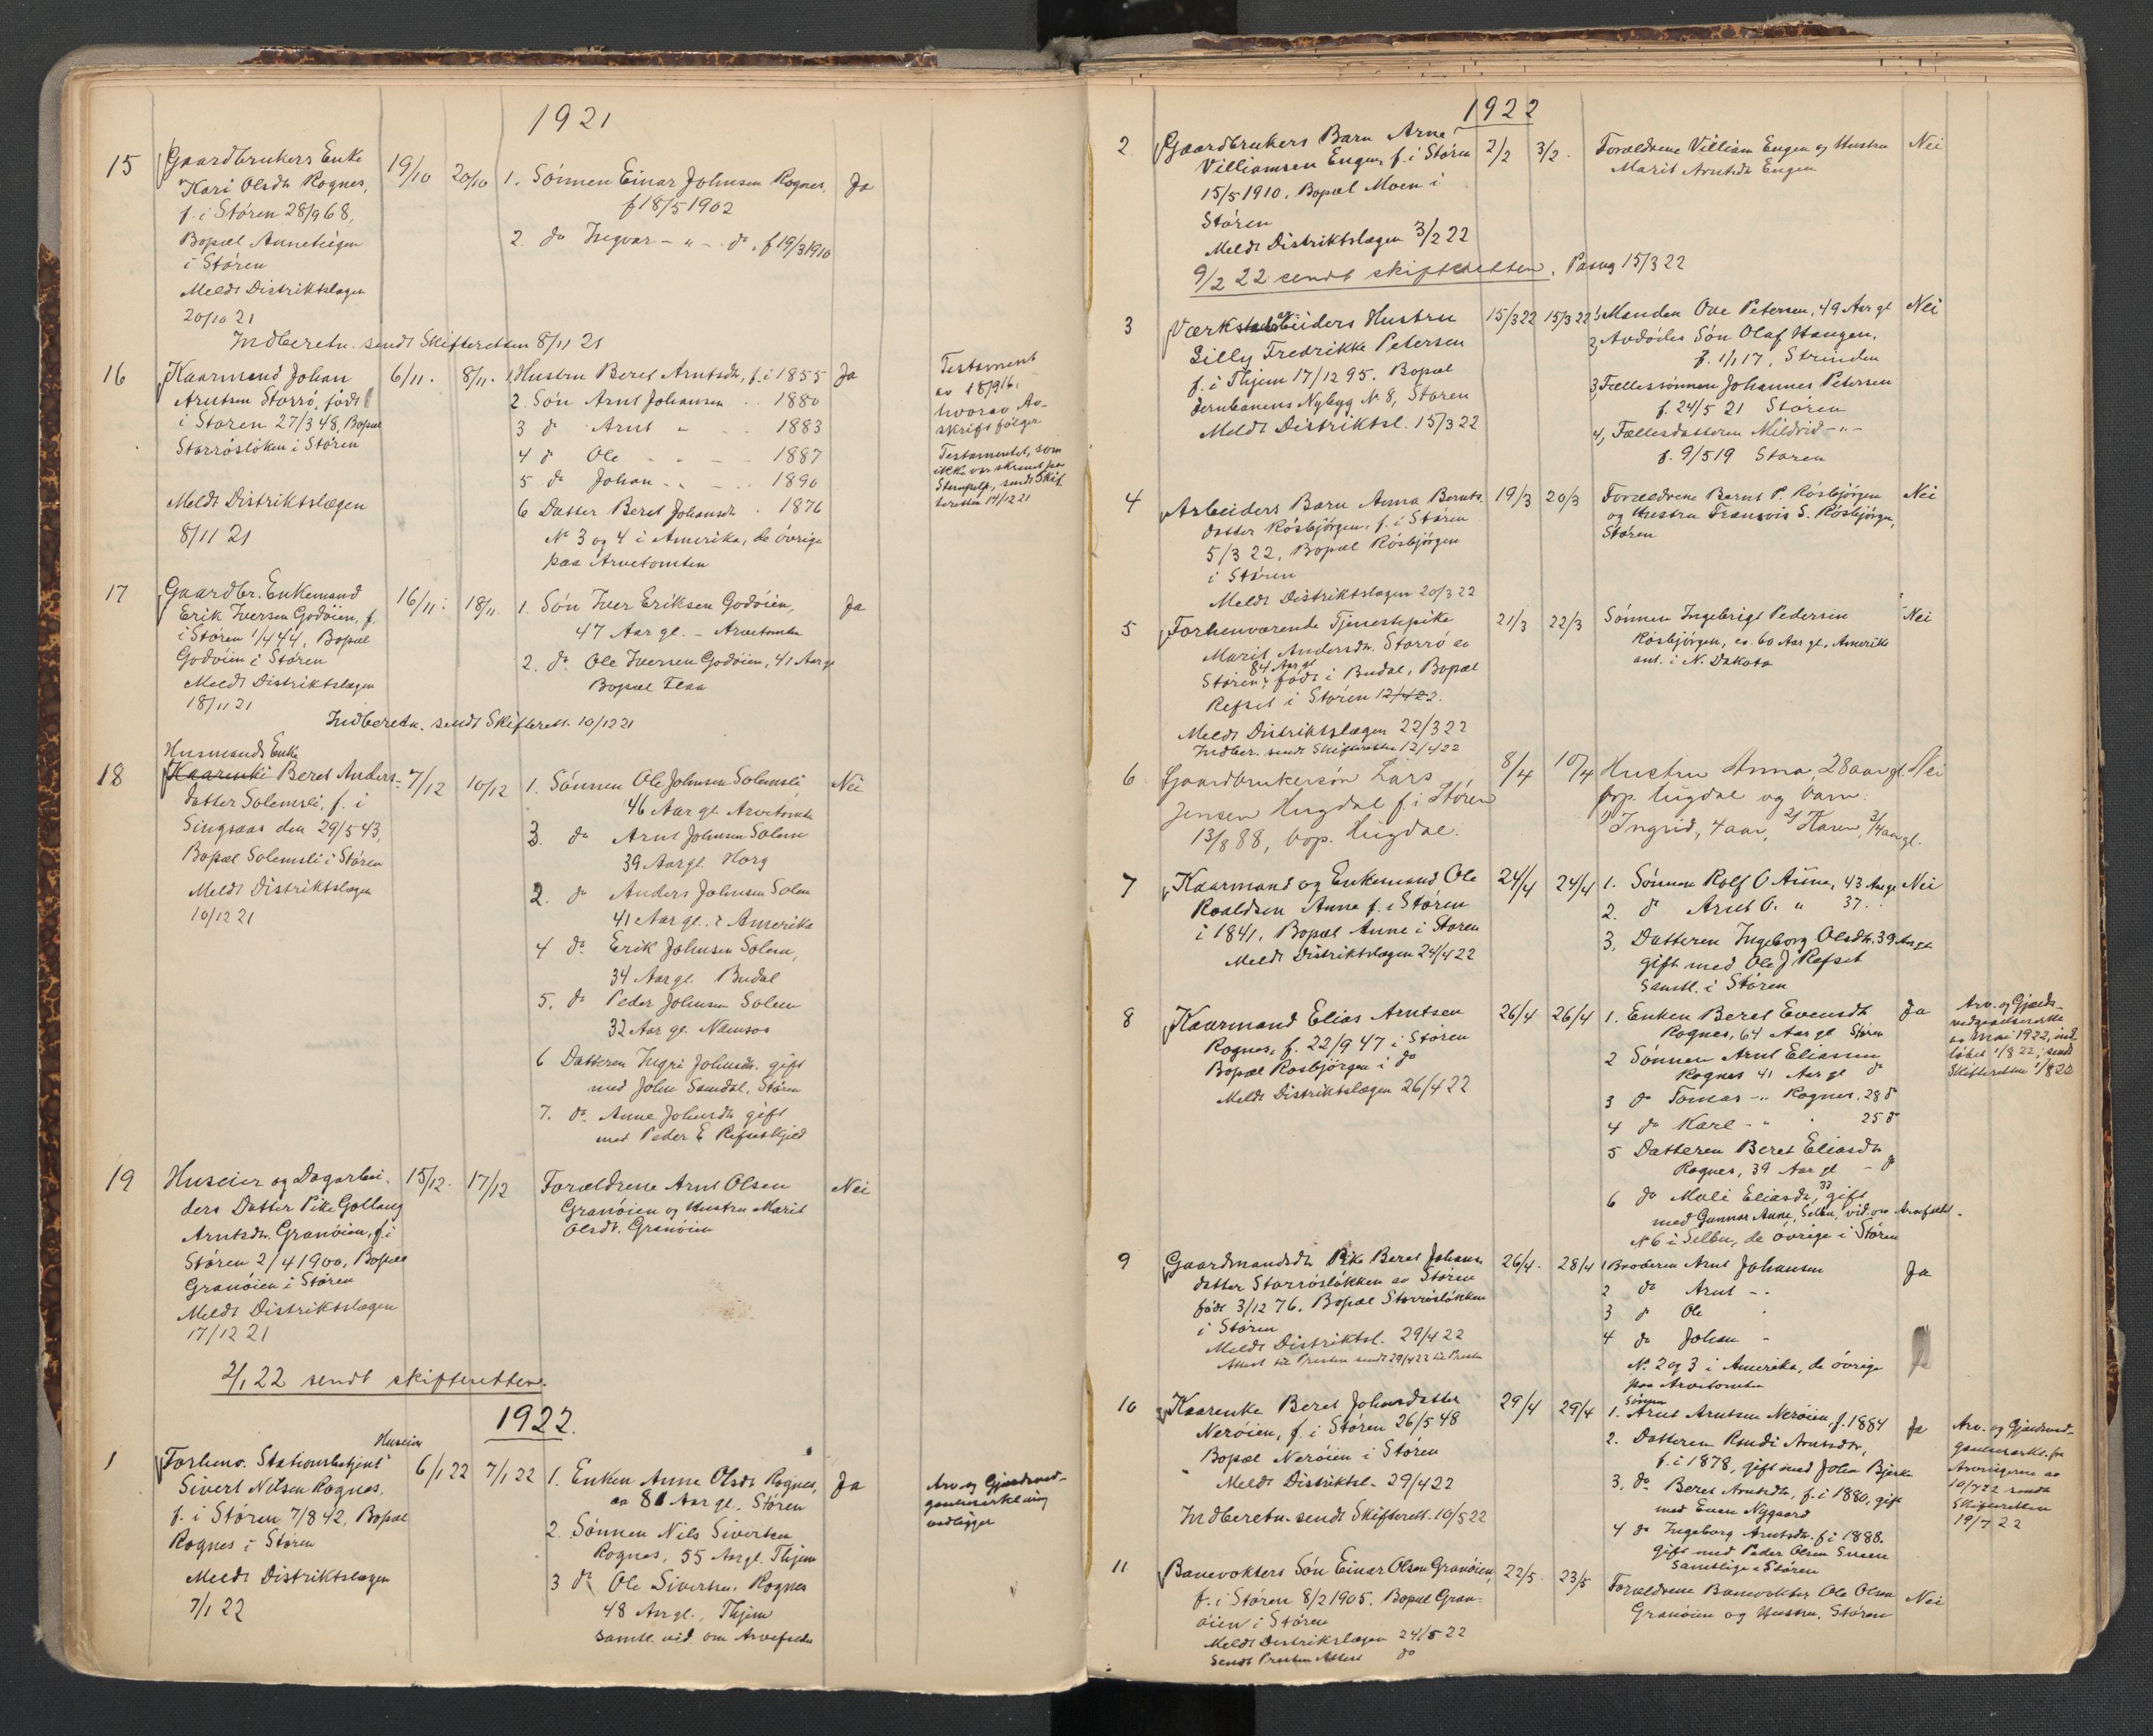 1921
15 Gaardbrukers Enke 19/10 20/10 1. Sönnen Einar Johnsen Rognes, Ja
Kari Olsdtr Rognes, f 18/5 1902
f. i Stören 28/9 68, 2. do Ingvar - " - do, f 19/3 1910
Bopæl
i Stören
Meldt Distriktslægen
20/10 21
Indberetn. sendt Skifteretten 8/11 21
16 Kaarmand Johan 6/11. 8/11. 1. Hustru Beret Arntsdtr, f. i 1855 Ja
Arntsen Storrö, födt 2. Sön Arnt Johansen 1880
i Stören 27/3 48, Bopæl 3 do Arnt " 1883
Storrösløken i Stören 4 do Ole 1887
5 do Johan 1890
Meldt Distriktslægen 6 Datter Beret Johansdtr. 1876
8/11 21 No 3 og 4 i Amerika, de övrige
paa Arvetomten
Testament
av 18/9 16,
hvorav Av-
skrift fölger
Testamentet, som
ikke var skrevet paa
Stempelp., sendt Skif-
teretten 14/12 21
17 Gaardbr. Enkemand 16/11. 18/11. 1. Sön Iver Eriksen Godöien, Ja
Erik Iversen Godöien, f. 47 Aar gl. - Arvetomten
i Stören 1/4 44, Bopæl 2. do Ole Iversen Godöien, 41 Aar gl
Godöien i Stören Bopæl Flaa
Meldt Distriktslægen
18/11 21
Indberetn. sendt Skifterett. 10/12 21
Husmands Enke
18 Kaarenke Beret Anders- 7/12 10/12 1. Sönnen Ole Johnsen Solemsli Nei
datter Solemsli, f. i 46 Aar gl Arvetomten
Singsaas den 29/5 43, 3. do Arnt Johnsen Solem
Bopæl Solemsli i Stören 39 Aar gl. Horg
Meldt Distriktslægen 2. do Anders Johnsen Solem
10/12 21 41 Aar gl. i Amerika
4 do Erik Johnsen Solem,
34 Aar gl. Budal
5. do Peder Johnsen Solem
32 Aar gl. Namsos
6 Datteren Ingri Johnsdtr. gift
med John Samdal, Stören
7. do Anne Johnsdtr gift
med Peder E
19 Huseier og Dagarbei- 15/12. 17/12 Forældrene Arnt Olsen Nei
ders Datter Pike Gollaug Granöien og Hustru Marit
Arntsdtr. Granöien, f. i Olsdt. Granöien
Stören 2/4 1900, Bopæl
Granöien i Stören
Meldt Distriktslægen
17/12 21
2/1 22 sendt skifteretten.
1922.
Huseier
1 Forhenv. Stationsbetjent 6/1 22 7/1 22 1. Enken Anne Olsdt Rognes, Ja
Sivert Nilsen Rognes, ca 81 Aar gl., Stören
f. i Stören 7/8 42, Bopæl 2. Sönnen Nils Sivertsen
Rognes i Stören Rognes, 55 Aar gl. Thjem
Meldt Distriktslægen 3 do Ole Sivertsen Rognes
7/1 22 48 Aar gl., Thjem
samtl. vid. om Arvefaldet
Arv og Gjældsved-
gaaelseserklæring
vedligger
1922
2 Gaardbrukers Barn Arne 2/2 3/2. Forældrene Villiam Engen og Hustru Nei
Villiamsen Engen, f. i Stören Marit Arntsdtr Engen
15/5 1910, Bopæl Moen i
Stören
Meldt Distriktslægen 3/2 22
9/2 22 sendt skifteretten. 15/3 22
3 Værkstedsarbeiders Hustru 15/3 22 15/3 22 1, Manden Ove Petersen, 49 Aar gl Nei
Lilly Fredrikke Petersen 2, Avdödes Sön Olaf Haugen,
f. i Thjem 17/12 95. Bopæl f. 1/1 17, Strinden
Jernbanens Nybyg No 8, Stören 3, Fællessönnen Johannes Petersen
Meldt Distriktsl. 15/3 22 f. 24/5 21 Stören
4, Fællesdatteren Mildrid - " -
f. 9/5 19 Stören
4 Arbeiders Barn Anna Bernts- 19/3 20/3 Forældrene Bernt P. Rösbjörgen Nei
datter Rösbjörgen, f. i Stören og Hustru S. Rösbjörgen,
5/3 22, Bopæl Rösbjörgen Stören
i Stören
Meldt Distriktslægen 20/3 22
5 Forhenværende Tjenestepike 21/3 22/3 Sönnen Ingebrigt Pedersen Nei
Marit Andersdtr. Storrö av Rösbjörgen, ca. 60 Aar gl. Amerika
84 Aar gl ant. i N. Dakota
Stören, födt i Budal, Bopæl
Refset i Stören 12/4 22.
Meldt Distriktslægen 22/3 22
Indber. sendt Skifteretten 12/4 22
6 Gaardbrukersön Lars 8/4 10/4 Hustru Anna, 28 aar gl. Nei
Jensen Hugdal f. i Stören bop. Hugdal og barn:
13/8 88, bop. Hugdal. 1) Ingrid, 4 aar, 2) Karen, 3/4 aar gl.
7 Kaarmand og Enkemand Ole 24/4 24/4 1. Sönnen Rolf O Aune, 43 Aar gl Nei
Roaldsen Aune f. i Stören 2. do Arnt O. " 37
i 1841, Bopæl Aune i Stören 3. Datteren Ingeborg Olsdtr. 39 Aar gl
Meldt Distriktslægen 24/4 22 gift med Ole J Refset
Samtl. i Stören
8 Kaarmand Elias Arntsen 26/4 26/4 1. Enken Beret Evensdtr Ja
Rognes, f. 22/9 47 i Stören Rognes, 64 Aar gl Stören
Bopæl Rosbjörgen i do 2 Sönnen Arnt Eliassen
Meldt Distriktslægen 26/4 22 Rognes 41 Aar gl do
3 do Tomas - " Rognes, 28 do
4 do Karl - " 25 do
5 Datteren Beret Eliasdtr
Rognes, 39 Aar gl - do
6 do Mali Eliasdtr, 33 gift
med Gunnar Aune, Selbu, vid. om Arvefaldet.
No 6 i Selbu, de övrige i Stören
Arv. og Gjælds-
vedgaaelseserkl.
av Mai 1922, ind-
löbet 1/8 22, sendt
Skifteretten 1/8 22
9 Gaardmandsdtr Pike Beret Johans- 26/4. 28/4 1 Broderen Arnt Johansen Ja
datter Storrösløkken av Stören 2 do Arnt - "
födt 3/12 76. Bopæl Storrösløkken 3 do Ole
i Stören 4 do Johan "
Meldt Distriktsl. 29/4 22 No. 2 og 3 i Amerika, de övrige
Attest til Presten sendt 29/4 22 paa Arvetomten
10 Kaarenke Beret Johnsdatter 29/4 29/4 Sönnen
1. Arnt Arntsen Neröien, f. 1884 Ja
Neröien, f. i Stören 26/5 48 2. Datteren Randi Arntsdtr,
Bopæl Neröien i Stören f. i 1878, gift med John Bjerke
Meldt Distriktsl. 29/4 22 3, do Beret Arntsdtr, f. i 1880, gift
Indberetn. sendt Skifterett. 10/5 22 med Even Nygaard
4 do Ingeborg Arntsdtr. f. i 1888.
gift med Peder Olsen
Samtlige i Stören
Arv. og Gjældsved-
gaaelseserkl. fra
Arvingerne av
10/7 22 sendt
Skifteretten
19/7 22
11 Banevokters Sön Einar Olsen Granöien, 22/5. 23/5 Forældrene Banevokter Ole Olsen Nei
f. i Stören 8/2 1905, Bopæl Gran- Granöien og Hustru, Stören
öien i Stören
Meldt Distriktslægen 24/5 22
Sendt Presten Attest do